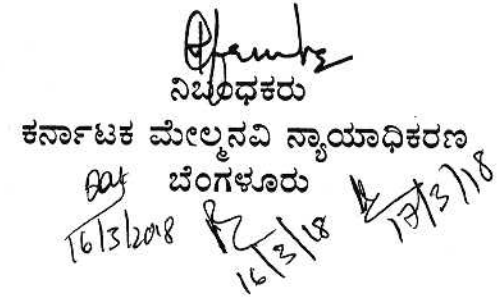 ನಿಬಂಧಕರು
ಕರ್ನಾಟಕ ಮೇಲ್ಮನವಿ ನ್ಯಾಯಾಧಿಕರಣ
ಬೆಂಗಳೂರು
16/3/2018
16/3/18
17/3/18